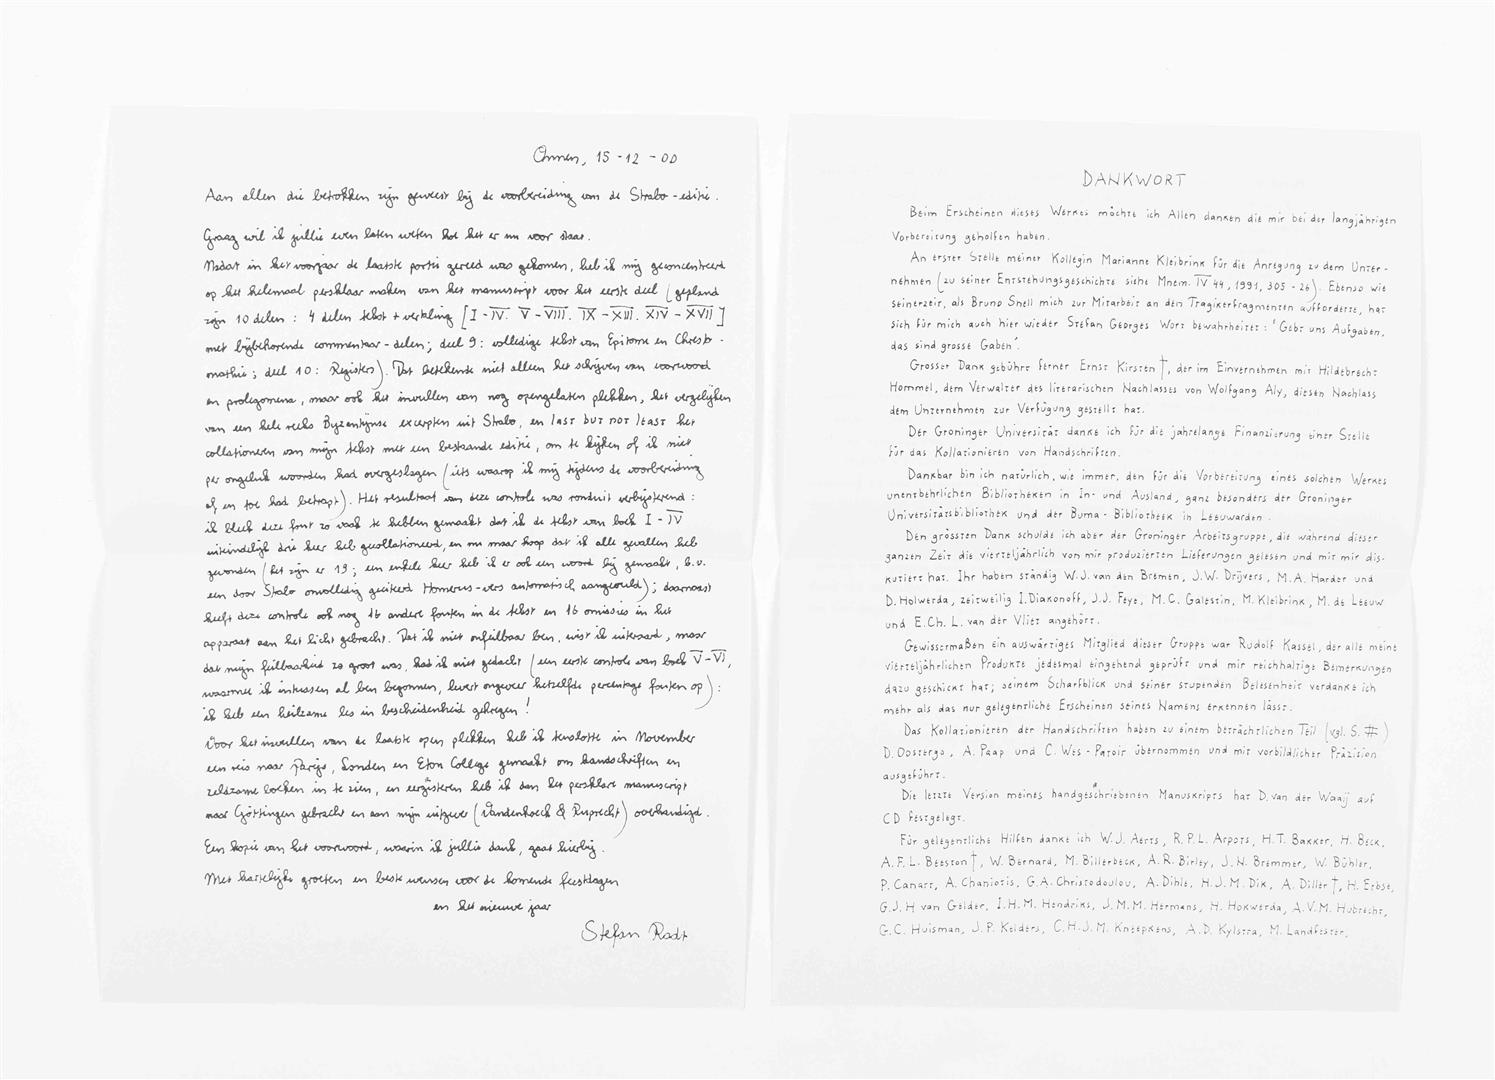 Onnen, 15-12-00
Aan allen die betrokken zijn geweest bij de voorbereiding van de Strabo-editie.
Graag wil ik jullie even laten weten hoe het er nu voor staat.
Nadat in het voorjaar de laatste portie gereed was gekomen, heb ik mij geconcentreerd
op het helemaal persklaar maken van het manuscript voor het eerste deel (gepland
zijn 10 delen: 4 delen tekst + vertaling [I-IV. V-VIII. IX-XIII. XIV-XVII]
met bijbehorende commentaar-delen; deel 9: volledige tekst van Epitome en Chrest-
omathie; deel 10: Registers). Dat betekende niet alleen het schrijven van voorwoord
en prolegomena, maar ook het invullen van nog opengelaten plekken, het vergelijken
van een hele reeks Byzantijnse excerpten uit Strabo, en last but not least het
collationeren van mijn tekst met een bestaande editie, om te kijken of ik niet
per ongeluk woorden had overgeslagen (iets waarop ik mij tijdens de voorbereiding
af en toe had betrapt). Het resultaat van deze controle was ronduit verbijsterend:
ik bleek deze fout zo vaak te hebben gemaakt dat ik de tekst van boek I-IV
uiteindelijk drie keer heb gecollationeerd, en nu maar hoop dat ik alle gevallen heb
gevonden (het zijn er 19; een enkele keer heb ik er ook een woord bij gemaakt, b.v.
een door Strabo onvolledig geciteerd Homerus-vers automatisch aangevuld); daarnaast
heeft deze controle ook nog 16 andere fouten in de tekst en 16 omissies in het
apparaat aan het licht gebracht. Dat ik niet onfeilbaar ben, wist ik uiteraard, maar
dat mijn feilbaarheid zo groot was, had ik niet gedacht (een eerste controle van boek V-VI,
waarmee ik intussen al ben begonnen, levert ongeveer hetzelfde percentage fouten op):
ik heb een heilzame les in bescheidenheid gekregen!
Voor het invullen van de laatste open plekken heb ik tenslotte in November
een reis naar Parijs, Londen en Eton College gemaakt om handschriften en
zeldzame boeken in te zien, en eergisteren heb ik dan het persklare manuscript
naar Göttingen gebracht en aan mijn uitgever (Vandenhoeck & Ruprecht) overhandigd.
Een kopie van het voorwoord, waarin ik jullie dank, gaat hierbij.
Met hartelijke groeten en beste wensen voor de komende feestdagen
en het nieuwe jaar
Stefan Radt
DANKWORT
Beim Erscheinen dieses Werkes möchte ich Allen danken die mir bei der langjährigen
Vorbereitung geholfen haben.
An erster Stelle meiner Kollegin Marianne Kleibrink für die Anregung zu dem Unter-
nehmen (zu seiner Entstehungsgeschichte siehe Mnem. IV 44, 1991, 305-26). Ebenso wie
seinerzeit, als Bruno Snell mich zur Mitarbeit an den Tragikerfragmenten aufforderte, hat
sich für mich auch hier wieder Stefan Georges Wort bewahrheitet: 'Gebt uns Aufgaben,
das sind grosse Gaben'.
Grosser Dank gebührt ferner Ernst Kirsten†, der im Einvernehmen mit Hildebrecht
Hommel, dem Verwalter des literarischen Nachlasses von Wolfgang Aly, diesen Nachlass
dem Unternehmen zur Verfügung gestellt hat.
Der Groninger Universität danke ich für die jahrelange Finanzierung einer Stelle
für das Kollationieren von Handschriften.
Dankbar bin ich natürlich, wie immer, den für die Vorbereitung eines solchen Werkes
unentbehrlichen Bibliotheken in In- und Ausland, ganz besonders der Groninger
Universitätsbibliothek und der Buma-Bibliotheek in Leeuwarden.
Den grössten Dank schulde ich aber der Groninger Arbeitsgruppe, die während dieser
ganzen Zeit die vierteljährlich von mir produzierten Lieferungen gelesen und mit mir dis-
kutiert hat. Ihr haben ständig W.J. van den Bremen, J.W. Drijvers, M.A. Harder und
D. Holwerda, zeitweilig I. Diakonoff, J.J. Feye, M.C. Galestin, M. Kleibrink, M. de Leeuw
und E.Ch.L. van der Vliet angehört.
Gewissermaßen ein auswärtiges Mitglied dieser Gruppe war Rudolf Kassel, der alle meine
vierteljährlichen Produkte jedesmal eingehend geprüft und mir reichhaltige Bemerkungen
dazu geschickt hat; seinem Scharfblick und seiner stupenden Belesenheit verdanke ich
mehr als das nur gelegentliche Erscheinen seines Namens erkennen lässt.
Das Kollationieren der Handschriften haben zu einem beträchtlichen Teil (vgl. S. #)
D. Oostergo, A. Paap und C. Wes-Patoir übernommen und mit vorbildlicher Präzision
ausgeführt.
Die letzte Version meines handgeschriebenen Manuskripts hat D. van der Waaij auf
CD festgelegt.
Für gelegentliche Hilfen danke ich W.J. Aerts, R.P.L. Arpots, H.T. Bakker, H. Beck,
A.F.L. Beeston†, W. Bernard, M. Billerbeck, A.R. Birley, J.N. Bremmer, W. Bühler,
P. Canart, A. Chaniotis, G.A. Christodoulou, A. Dihle, H.J.M. Dik, A. Diller†, H. Erbse,
G.J.H van Gelder, I.H.M. Hendriks, J.M.M. Hermans, H. Hokwerda, A.V.M. Hubrecht,
G.C. Huisman, J.P. Kelders, C.H.J.M. Kneepkens, A.D. Kylstra, M. Landfester,